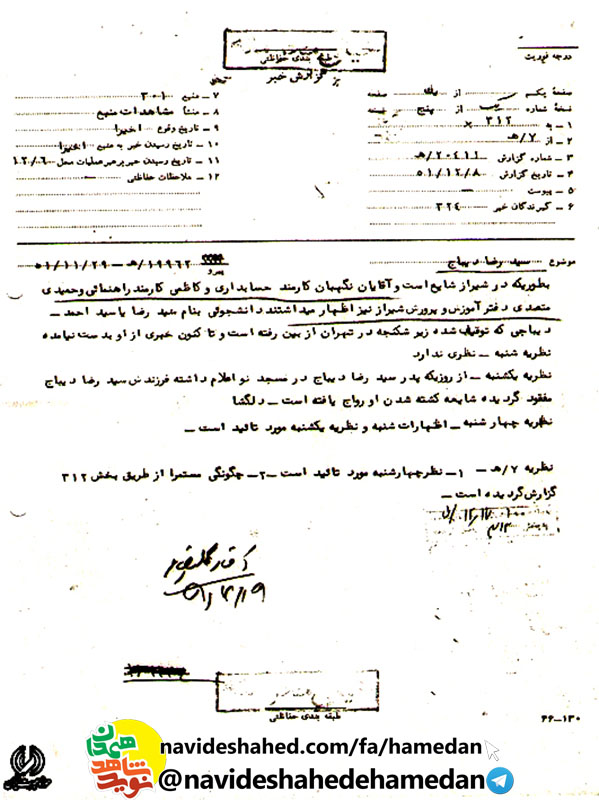 طبقه بندی حفاظتی
درجه فوریت
گزارش خبر
صفحه یکم از یک صفحه
نسخه شماره یک از پنج نسخه
۱ ـ به ۳۱۲
۲ ـ از ۷/هـ
۳ ـ شماره گزارش ۲۰۴۱۱/هـ
۴ ـ تاریخ گزارش ۵۱/۱۲/۸
۵ ـ پیوست ـ
۶ ـ گیرندگان خبر ۳۲۴
۷ ـ منبع ۳۰۰۱
۸ ـ منشأ مشاهدات منبع
۹ ـ تاریخ وقوع اخیرا
۱۰ ـ تاریخ رسیدن خبر به منبع اخیرا
۱۱ ـ تاریخ رسیدن خبر برهبر عملیات محل ۱۲/۰۶
۱۲ ـ ملاحظات حفاظتی ـ
موضوع سید رضا دیباج
پیرو ۱۹۹۶۲/هـ ـ ۵۱/۱۱/۲۹
بطوریکه در شیراز شایع است و آقایان نگهبان کارمند حسابداری و کاظمی کارمند راهنمائی و حمیدی
متصدی دفتر آموزش و پرورش شیراز نیز اظهار میداشتند دانشجوئی بنام سید رضا یا سید احمد ـ
دیباجی که توقیف شده زیر شکنجه در تهران از بین رفته است و تا کنون خبری از او بدست نیامده
نظریه شنبه ـ نظری ندارد
نظریه یکشنبه ـ از روزیکه پدر سید رضا دیباج در مسجد نو اعلام داشته فرزندش سید رضا دیباج
مفقود گردیده شایعه کشته شدن او رواج یافته است ـ دلگشا
نظریه چهارشنبه ـ اظهارات شنبه و نظریه یکشنبه مورد تائید است ـ
نظریه ۷/هـ ـ ۱ ـ نظر چهارشنبه مورد تائید است ـ ۲ ـ چگونگی مستمرا از طریق بخش ۳۱۲
گزارش گردیده است ـ
طبقه بندی حفاظتی
۶۶ــ۱۳۰
نوید شاهد همدان
navideshahed.com/fa/hamedan
@navideshahedehamedan